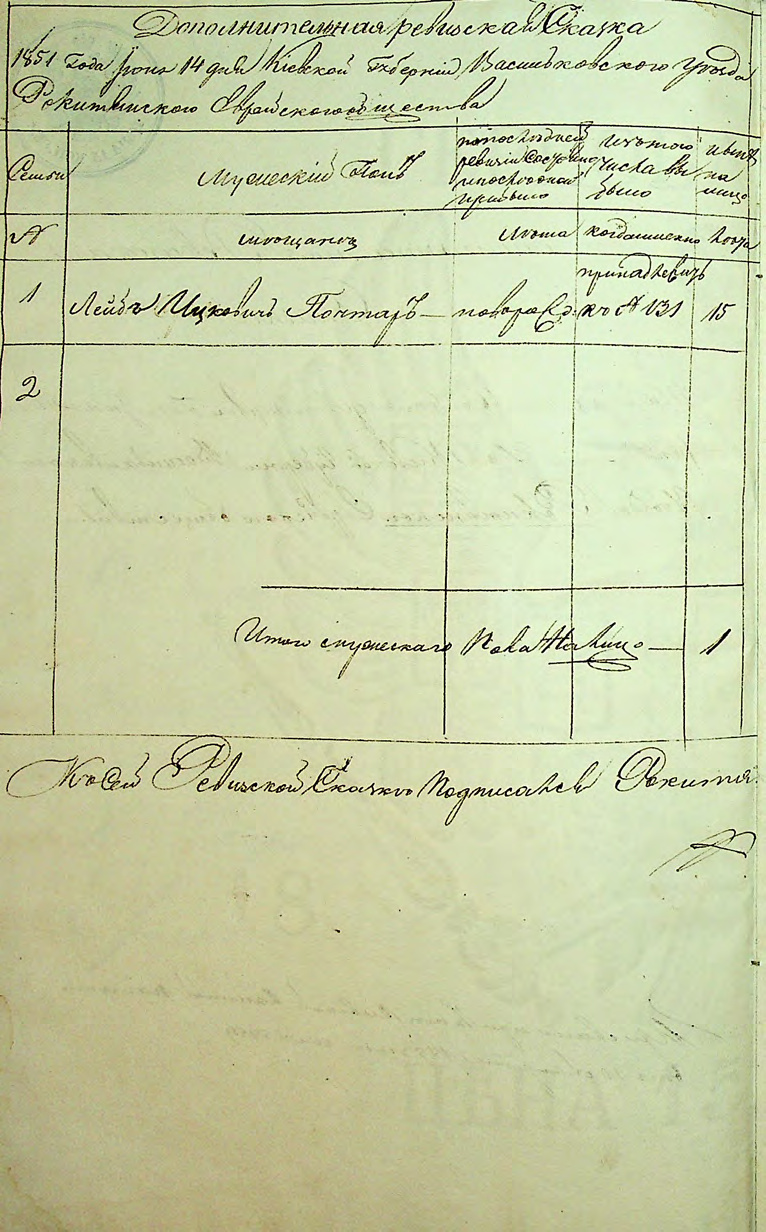 Дополнительная ревизская Сказка
1851 Года Іюня 14 дня Кіевской Губерніи, Васильковского уезда
Рокитянского Еврейского общества
Семьи
Мужескій Полъ
по последней ревизіи Состояло и после оной прибыло
Изъ того числа выбыло
Ныне на лицо
№
мещанѣ
Лета
когда именно
Лета
1
Лейбъ Ицковичъ Почтаръ —
по
принадлежитъ
къ № 131
15
2
Итого мужескаго Пола На Лицо — 1
Къ Сей Ревизской Сказке Подписался